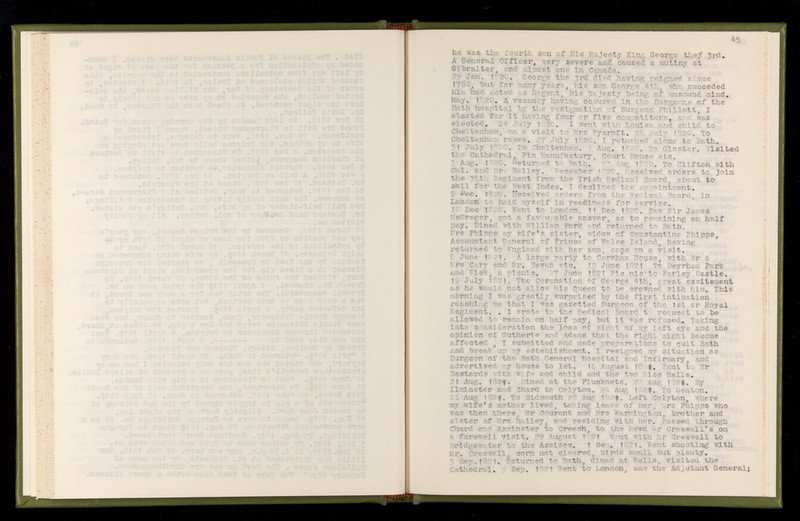 45
he was the fourth son of His Majesty King George the 3rd.
A General Officer, very severe and caused a mutiny at
Gibralter, and almost one in Canada.
29 Jan. 1820. George the 3rd died having reigned since
1760, but for many years, his son George 4th, who succeeded
him had acted as Regent, His Majesty being of unsound mind.
May. 1820. A vacancy having occured in the Surgeons of the
Bath hospital by the resignation of Surgeon Phillott, I
started for it having four or five competitors, and was
elected. July 1820. I went with Louisa and child to
Cheltenham, on a visit to Mrs Pycroft. 26 July 1820. To
Cheltenham races. 27 July 1820. I returned alone to Bath.
31 July 1820. To Cheltenham. 1 Aug. 1820. To Gloster. Visited
the Cathedral, Pin Manufactury, Court House etc.
3 Aug. 1820. Returned to Bath. Aug 1820. To Clifton with
Col. and Mrs Bailey. December 1820. Received orders to join
the Regiment from the Irish Medical Board, about to
sail for the West Indes. I declined the appointment.
9 Dec. 1820. Received orders from the Medical Board, in
London to hold myself in readiness for service.
10 Dec 1820. Went to London. 11 Dec 1820. Saw Sir James
McGregor, got a favourable answer, as to remaining on half
pay. Dined with William Ford and returned to Bath.
Mrs Phipps my wife's sister, widow of Constantine Phipps,
Accountant General of Prince of Wales Island, having
returned to England with her son, came on a visit.
June 1821. A large party to Corsham House, with Mr &
Mrs Cary and Mr. Bevan etc. 19 June 1821. To Deyrham Park
and Wick, a picnic. 27 June 1821 Pic nic to Farley Castle.
19 July 1821. The Coronation of George 4th, great excitement
as he would not allow his Queen to be crowned with him. This
morning I was greatly surprised by the first intimation
reaching me that I was gazetted Surgeon of the 1st or Royal
Regiment. . I wrote to the Medical Board to request to be
allowed to remain on half pay, but it was refused. Taking
into consideration the loss of sight of my left eye and the
opinion of Gutherie and Adams that the right might become
affected , I submitted and made preparations to quit Bath
and break up my establishment. I resigned my situation as
Surgeon of the Bath General Hospital and Infirmary, and
advertised my house to let. 15 August 1821. Went to Mr
Bastards with wife and child and the two Miss Halls.
21 Aug. 1821. Dined at the Flucknets. 22 Aug 1821. By
Ilminster and Chard to Colyton. 24 Aug 1821. To Seaton.
25 Aug 1821. To Sidmouth 28 Aug 1821. Left Colyton, where
my wife's mother lived, taking leave of her, Mrs Phipps who
was then there, Mr Courant and Mrs Warmington, brother and
sister of Mrs Bailey, and residing with her. Passed through
Chard and Axminster to Creech, to the Revd Mr Creswell's on
a farewell visit. 29 August 1821 Went with Mr Creswell to
Bridgewater to the Assizes. 1 Sep. 1821. Went shooting with
Mr. Creswell, corn not cleared, birds small but plenty.
3 Sep. 1821. Returned to Bath, dined at Wells, visited the
Cathedral. Sep. 1821 Went to London, saw the Adjutant General;